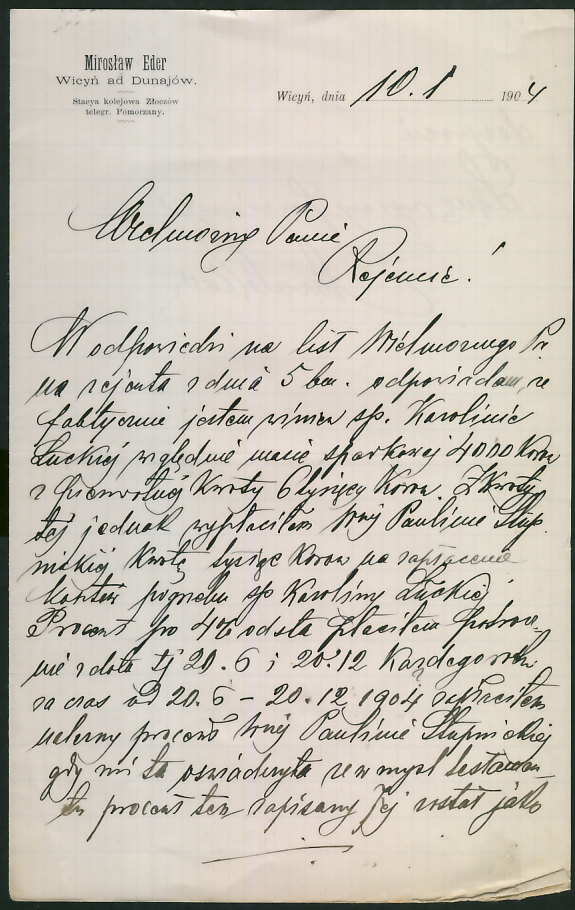 Mirosław Eder
Wicyń ad Dunajów.
Stacya kolejowa Złoczów
telegr. Pomorzany.
Wicyń, dnia 10.1 1904
Wielmożny Panie
Rejencie!
W odpowiedzi na list Wielmożnego Pa
na rejenta z dnia 5 bm. odpowiadam, że
faktycznie jestem winien śp. Karolinie
Łuckiej względnie masie spadkowej 4000 Koron
z pierwotnej kwoty 6 tysięcy Koron. Z kwoty
tej jednak wypłaciłem Wnej Paulinie Słup
nickiej kwotę tysiąc koron na zapłacenie
kosztów pogrzebu śp Karoliny Łuckiej
Procent po 4% od sta płaciłem półrocz-
nie z dołu tj 20.6 i 20.12 każdego roku
za czas od 20.6 - 20.12 1904 zapłaciłem
należny procent Wnej Paulinie Słupnickiej
gdy mi ta oświadczyła że w myśl testamen-
tu procent ten zapisany Jej został jako